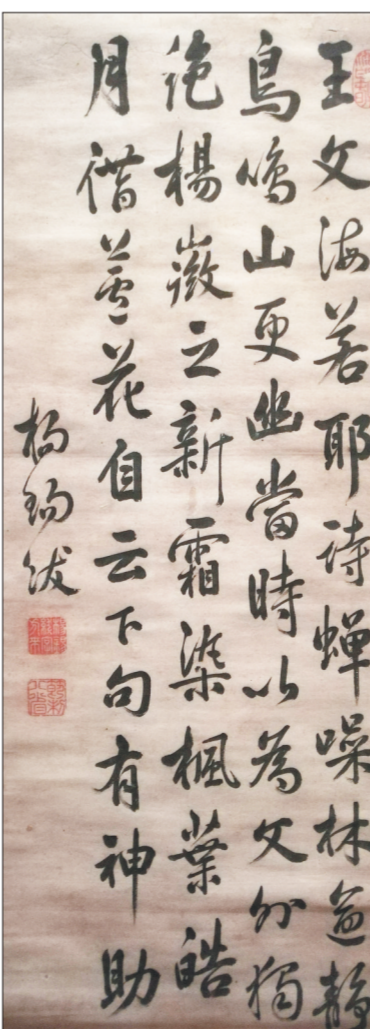 王文海若耶詩蟬噪林逾靜
鳥鳴山更幽當時以為文外獨
絶楊徽之新霜染楓葉皓
月借蘆花自云下句有神助
楊錫紱